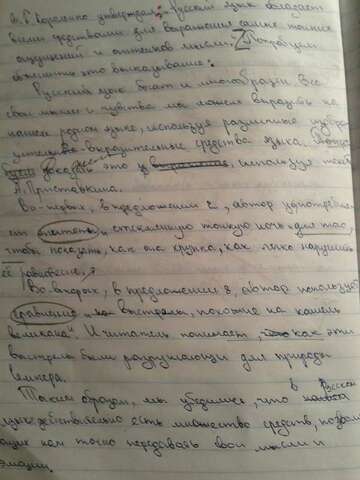 В.Г Короленко утверждал: „Русский язык обладает
всеми средствами для выражения самых тонких
ощущений и оттенков мысли". Попробуем
объяснить это высказывание.
Русский язык богат и многообразен. Все
свои мысли и чувства мы можем выразить на
нашем родном языке, используя различные изобра-
зительно-выразительные средства языка.
доказать это используя текст
А. Приставкина.
Во-первых, в предложении 2, автор употребляет
эпитеты, стеклянную тонкую ночь для того,
чтобы показать, как она хрупка, как легко нарушить
её равновесие.
Во вторых, в предложении 8, автор использует
сравнение выстрелы, похожие на кашель
великана". И читатель понимает, как эти
выстрелы были разрушающи для природы
вечера.
Таким образом, мы убедились, что в русском
языке действительно есть множество средств, позволя-
ющие нам точно передавать свои мысли и
эмоции.